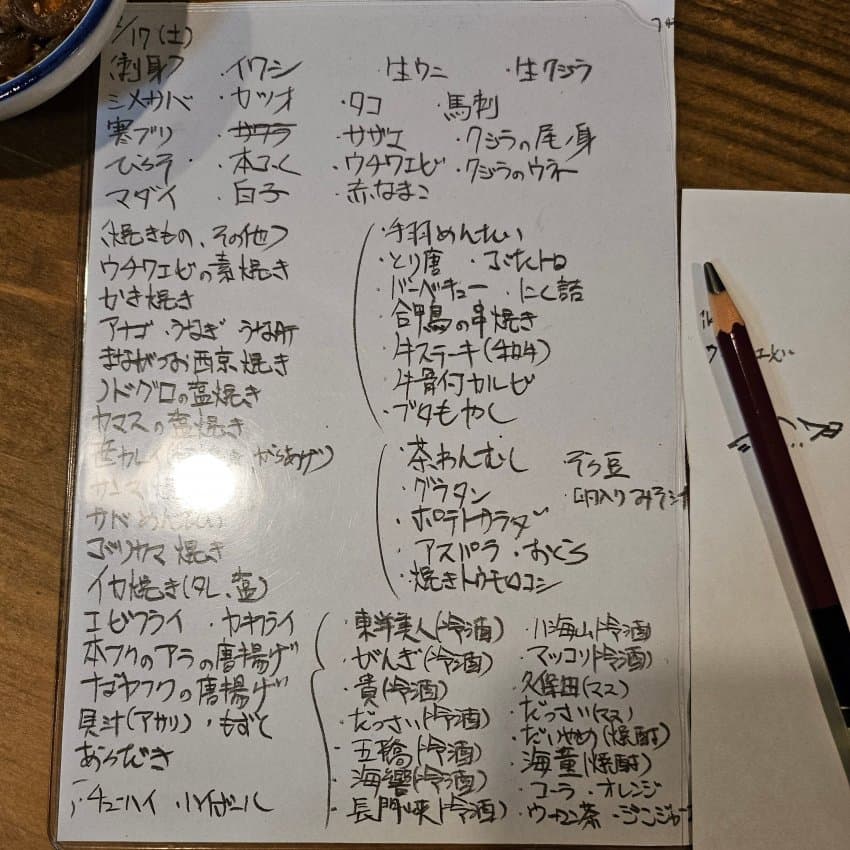 /17(土)
(刺身)
・イワシ
生ウニ
・生クジラ
シメサバ
・カツオ
・タコ
・馬刺
寒ブリ
・サワラ
・サザエ
・クジラの尾ノ身
ひらそ
・本ふく
・ウチワエビ
・クジラのウネー
マダイ
・白子
・赤なまこ
(焼きもの、その他)
ウチワエビの素焼き
かき焼き
アナゴ・うなぎ うな肝
まながつお西京焼き
ノドグロの塩焼き
ヤマスの塩焼き
カレイ
からあげ)
サンマ
めんたい
カマ焼き
イカ焼き(タレ、塩)
エビフライ ・カキフライ
本フクのアラの唐揚げ
ナゴヤフクの唐揚げ
貝汁(アサリ)・もずく
あらだき
・チューハイ ・ハイボール
・手羽めんたい
・とり唐 ・ぶたトロ
・バーベキュー ・にく詰
・合鴨の串焼き
・牛ステーキ(和牛)
・牛骨付カルビ
・ブタもやし
・茶わんむし そら豆
・グラタン ・卵入りみそ汁
・ポテトサラダ
・アスパラ ・おくら
・焼きトウモロコシ
・東洋美人(冷酒)
・がんぎ(冷酒)
・貴(冷酒)
・だっさい(冷酒)
・五橋(冷酒)
・海響(冷酒)
・長門峡(冷酒)
・八海山(冷酒)
・マッコリ(冷酒)
久保田(マス)
・だっさい(マス)
・だいやめ(焼酎)
・海童(焼酎)
・コーラ ・オレンジ
・ウーロン茶 ・ジンジャー